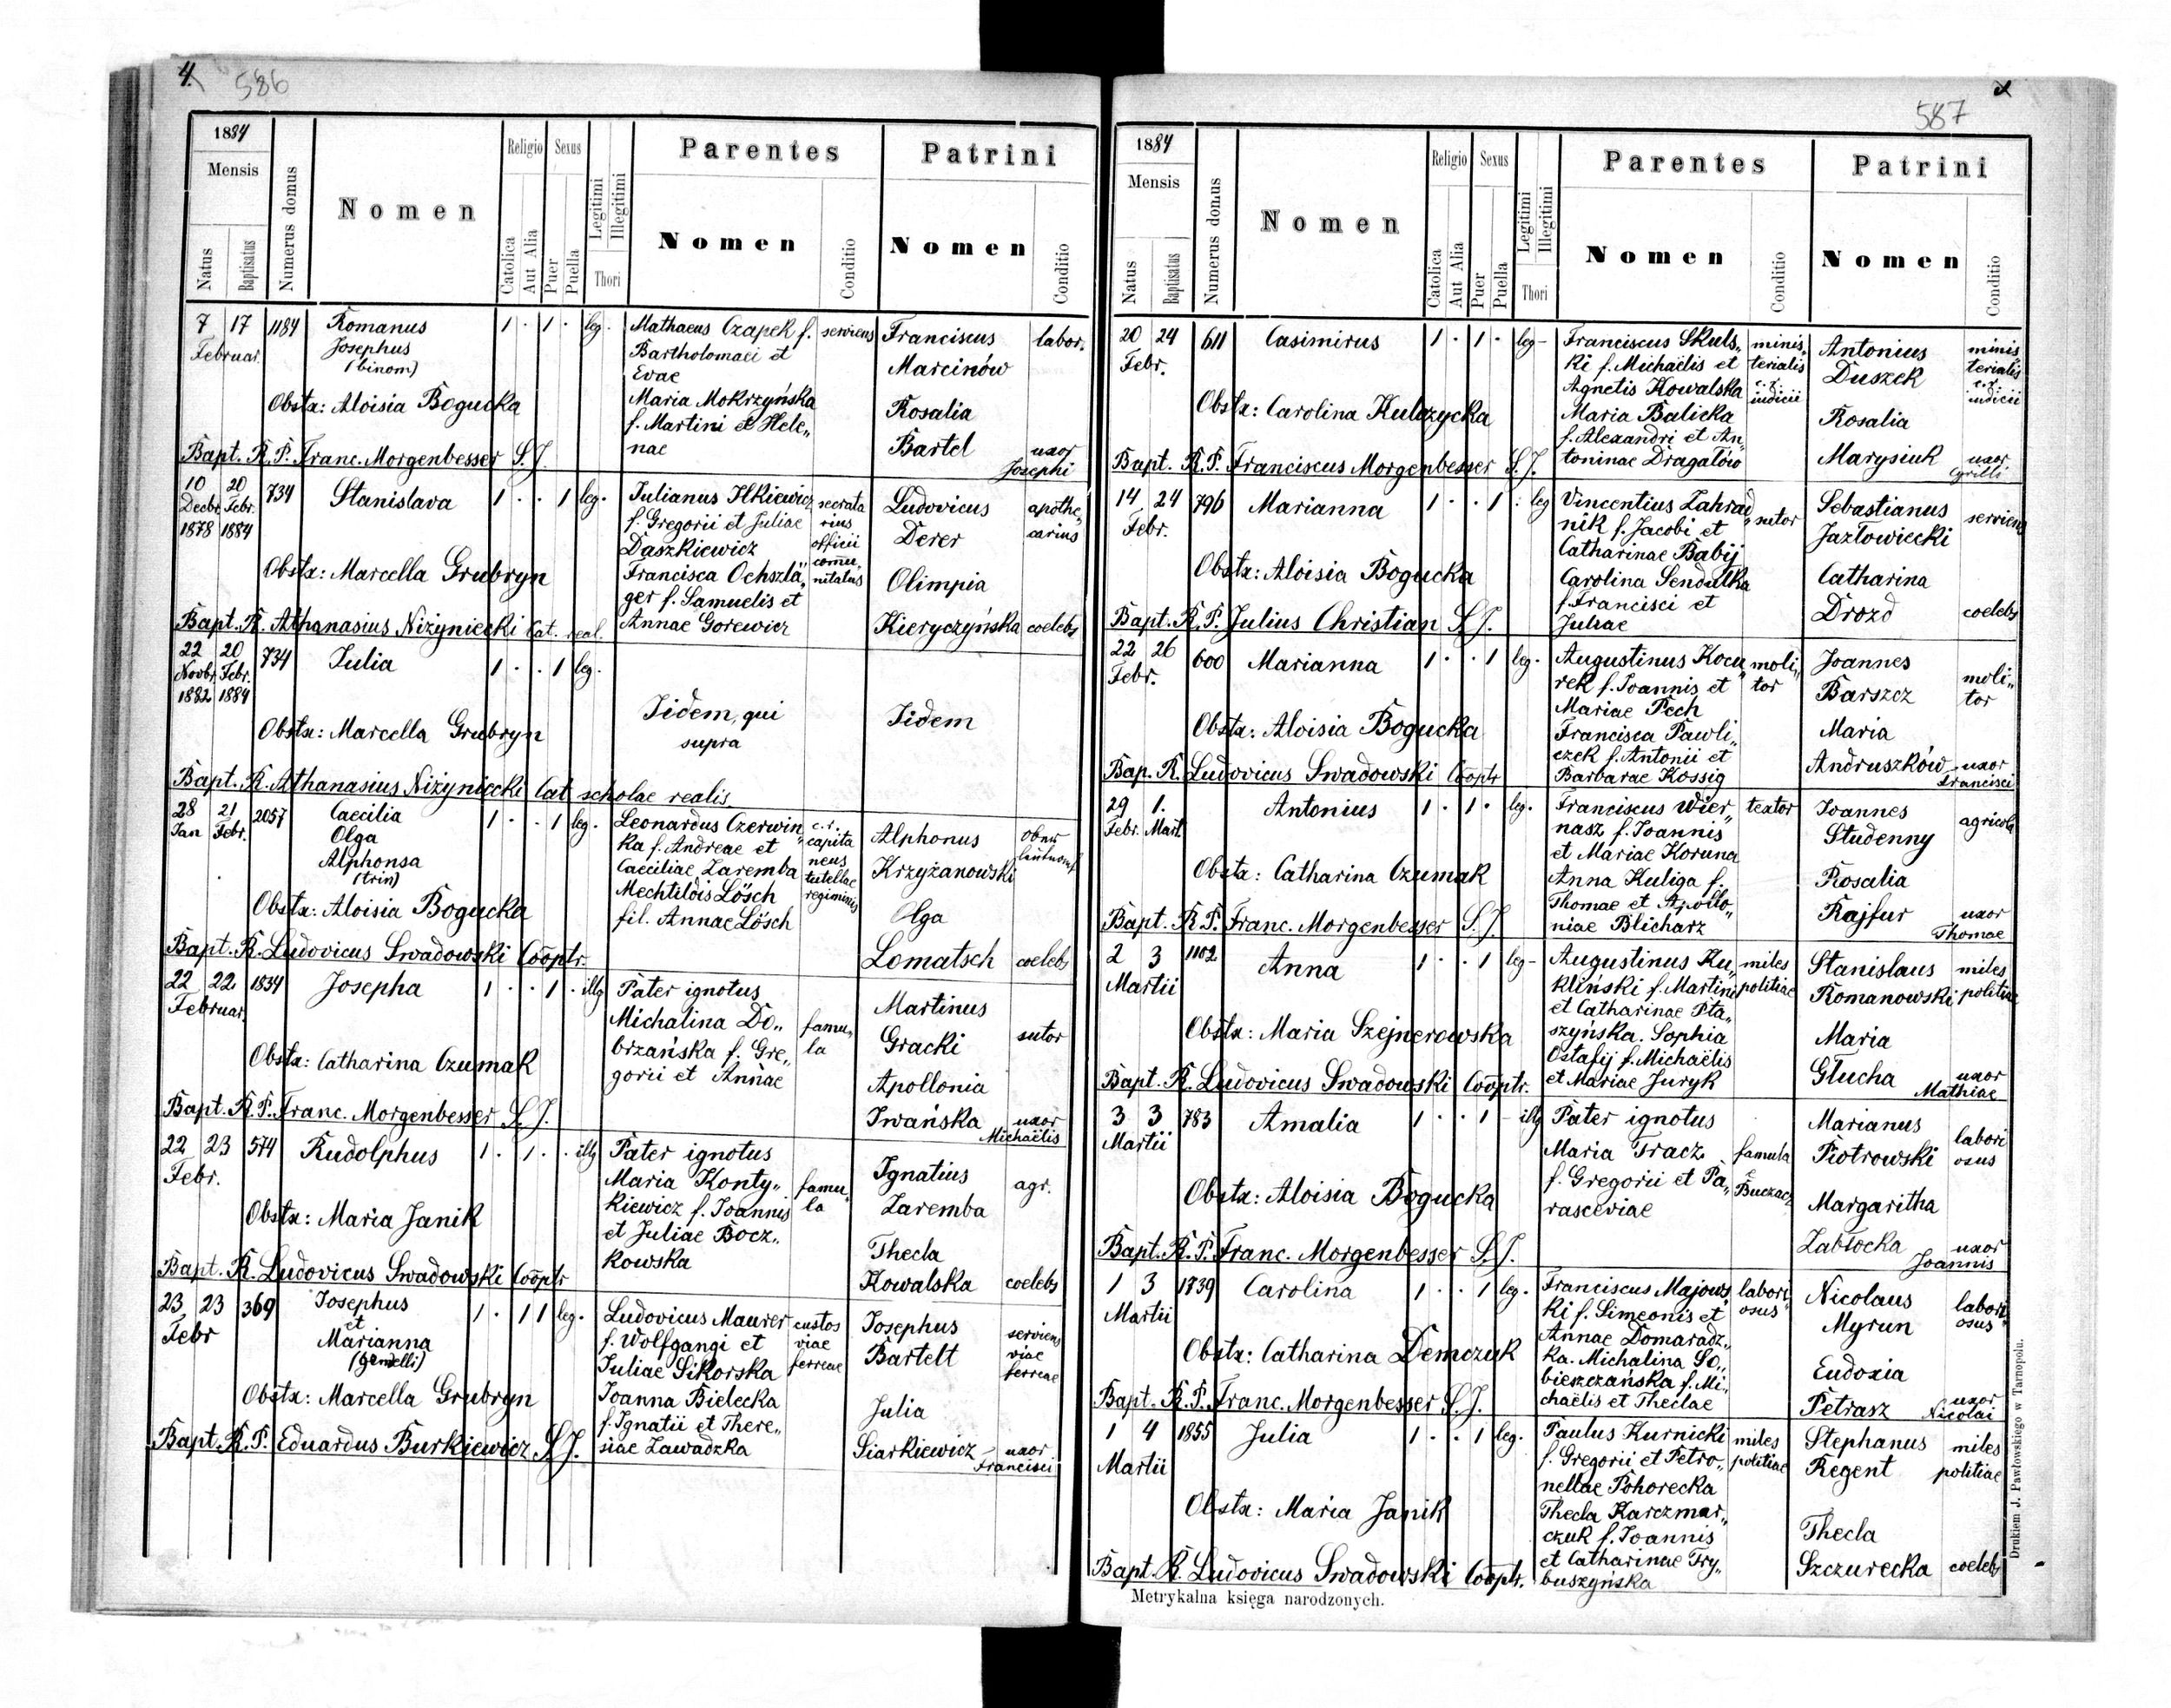 4.
586
1884
Mensis
Natus
Baptisatus
Numerus domus
Nomen
Religio
Catolica
Aut Alia
Sexus
Puer
Puella
Legitimi
Illegitimi
Thori
Parentes
Nomen
Conditio
Patrini
Nomen
Conditio
7 17 1184 Romanus 1 · 1 · leg. Mathaeus Czapek f. serviens Franciscus labor.
Februar. Josephus Bartholomaei et Marcinów
(binom) Evae
Obstx: Aloisia Bogucka Maria Mokrzyńska Rosalia
f. Martini et Hele„ Bartel uxor
Bapt. R. P. Franc. Morgenbesser S. J. nae Josephi
10 20 734 Stanislava 1 · · 1 leg. Julianus Ilkiewicz secreta Ludovicus apothe„
Decbr. Febr. f. Gregorii et Juliae rius Derer carius
1878 1884 Daszkiewicz officii
Obstx: Marcella Grubryn Francisca Ochszlä„ commu„ Olimpia
ger f. Samuelis et nitatus
Bapt. R. Athanasius Niżyniecki Cat. real. Annae Gorewicz Kieryczyńska coelebs
22 20 734 Julia 1 · · 1 leg.
Novbr. Febr.
1882 1884 Iidem, qui Iidem
Obstx: Marcella Grubryn supra
Bapt. R. Athanasius Niżyniecki Cat scholae realis.
28 21 2057 Caecilia 1 · · 1 leg. Leonardus Czerwin„ c. r. Alphonus
Jan Febr. Olga ka f. Andreae et capita Krzyżanowski
Alphonsa Caeciliae Zaremba neus
(trin) Mechtildis Lösch tutellae Olga
Obstx: Aloisia Bogucka fil. Annae Lösch regiminis
Bapt. R. Ludovicus Swadowski Cooptr. Lomatsch coelebs
22 22 1834 Josepha 1 · · 1 · illg Pater ignotus Martinus
Februar. Michalina Do„ famu„ Gracki sutor
Obstx: Catharina Czumak brzańska f. Gre„ la Apollonia
gorii et Annae
Bapt. R. P. Franc. Morgenbesser S. J. Iwańska uxor
Michaëlis
22 23 574 Rudolphus 1 · 1 · · illg Pater ignotus Ignatius agr.
Febr. Maria Konty„ famu„ Zaremba
Obstx: Maria Janik kiewicz f. Joannis la Thecla
et Juliae Bocz„
Bapt. R. Ludovicus Swadowski Cooptr kowska Kowalska coelebs
23 23 369 Josephus 1 · 1 1 leg. Ludovicus Maurer custos Josephus serviens
Febr et f. Wolfgangi et viae Bartelt viae
Marianna Juliae Sikorska ferreae ferreae
(gemelli)
Obstx: Marcella Grubryn Joanna Bielecka Julia
f. Ignatii et There„
Bapt. R. P. Eduardus Burkiewicz S. J. siae Zawadzka Siarkiewicz uxor
Francisci
587
1884
Mensis
Natus
Baptisatus
Numerus domus
Nomen
Religio
Catolica
Aut Alia
Sexus
Puer
Puella
Legitimi
Illegitimi
Thori
Parentes
Nomen
Conditio
Patrini
Nomen
Conditio
20 24 611 Casimirus 1 · 1 · leg- Franciscus Skuls„ minis„ Antonius minis„
Febr. ki f. Michaëlis et terialis Duszek terialis
Agnetis Kowalska c. r. c. r.
Obstx: Carolina Kulczycka Maria Balicka iudicii Rosalia iudicii
f. Alexandri et An„
Bapt. R. P. Franciscus Morgenbesser S. J. toninae Dragałów Marysiuk uxor
Cyrilli
14 24 796 Marianna 1 · · 1 · leg Vincentius Zahrad„ sutor Sebastianus serviens
Febr. nik f. Jacobi et Jazłowiecki
Catharinae Babij
Obstx: Aloisia Bogucka Carolina Sendulka Catharina
f. Francisci et Drozd coelebs
Bapt. R. P. Julius Christian S. J. Juliae
22 26 600 Marianna 1 · · 1 leg. Augustinus Kocu„ moli„ Joannes moli„
Febr. rek f. Joannis et tor Barszcz tor
Mariae Pech
Obstx: Aloisia Bogucka Francisca Pawli„ Maria
czek f. Antonii et
Bap. R. Ludovicus Swadowski Cooptr Barbarae Kossig Andruszków uxor
Francisci
29 1. Antonius 1 · 1 · leg. Franciscus Wier„ textor Joannes agricola
Febr. Mart. nasz f. Joannis Studenny
et Mariae Koruna
Obstx: Catharina Czumak Anna Kuliga f. Rosalia
Thomae et Apollo„
Bapt. R P. Franc. Morgenbesser S. J. niae Blicharz Rajfur uxor
Thomae
2 3 1102 Anna 1 · · 1 leg- Augustinus Ku„ miles Stanislaus miles
Martii kliński f. Martini politiae Romanowski politiae
et Catharinae Pta„
Obstx: Maria Szejnerowska szyńska. Sophia Maria
Ostafij f. Michaëlis
Bapt. R. Ludovicus Swadowski Cooptr. et Mariae Juryk Głucha uxor
Mathiae
3 3 783 Amalia 1 · · 1 - illg Pater ignotus Marianus labori
Martii Maria Tracz famula Piotrowski osus
Obstx: Aloisia Bogucka f. Gregorii et Pa„ e Buczacz Margaritha
rasceviae
Bapt. R. P. Franc. Morgenbesser S. J. Zabłocka uxor
Joannis
1 3 1739 Carolina 1 · · 1 leg. Franciscus Majows„ labori Nicolaus labori„
Martii ki f. Simeonis et osus Myrun osus
Annae Domaradz„
Obstx: Catharina Demczuk ka. Michalina So„ Eudoxia
bieszczańska f. Mi„
Bapt. R. P. Franc. Morgenbesser S. J. chaëlis et Theclae Petrasz uxor
Nicolai
1 4 1855 Julia 1 · · 1 leg. Paulus Kurnicki miles Stephanus miles
Martii f. Gregorii et Petro„ politiae Regent politiae
nellae Pohorecka
Obstx: Maria Janik Thecla Karczmar„ Thecla
czuk f. Joannis
et Catharinae Try„ Szczurecka coelebs
Bapt. R. Ludovicus Swadowski Cooptr. buszyńska
Metrykalna księga narodzonych.
Drukiem J. Pawłowskiego w Tarnopolu.